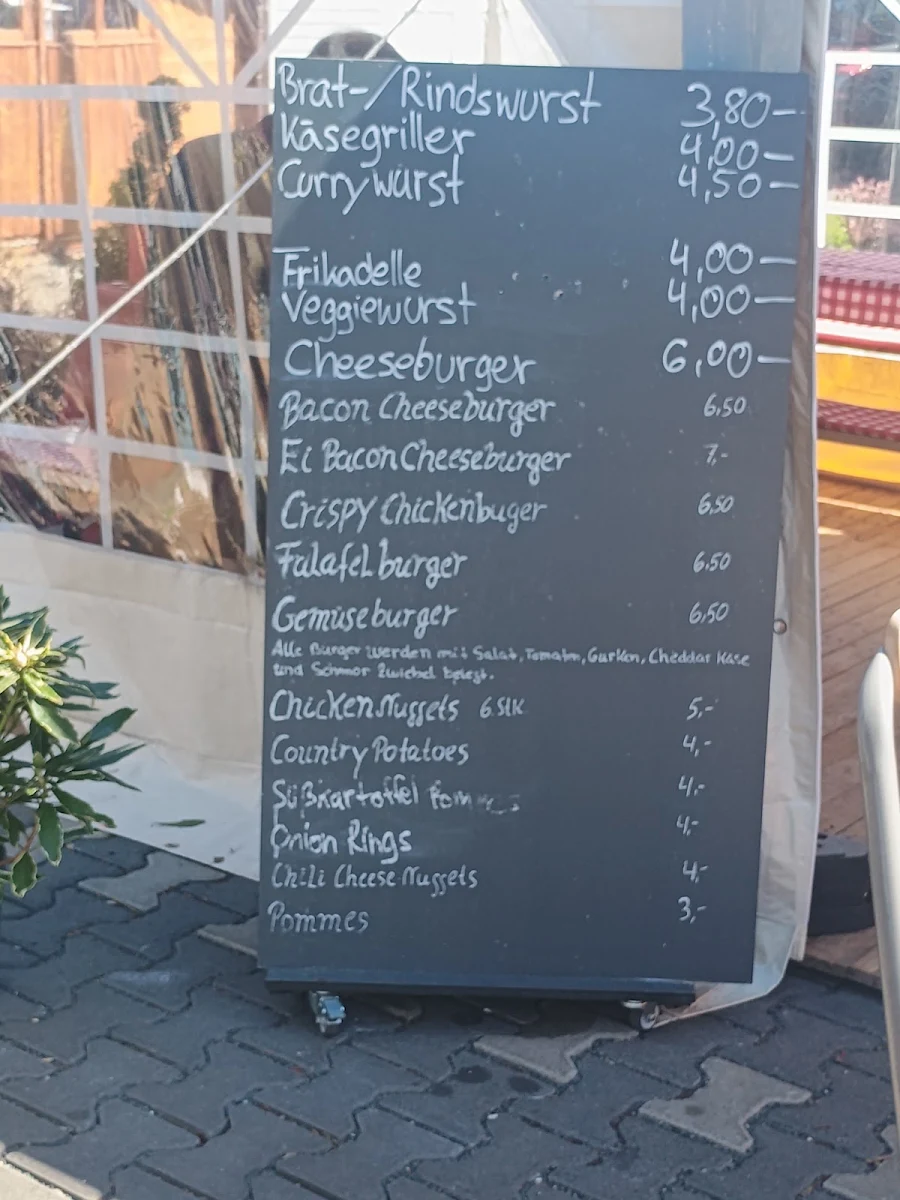 Brat-/Rindswurst 3,80-
Käsegriller 4,00-
Currywurst 4,50-
Frikadelle 4,00-
Veggiewurst 4,00-
Cheeseburger 6,00-
Bacon Cheeseburger 6,50
Ei Bacon Cheeseburger 7,-
Crispy Chickenbuger 6,50
Falafel burger 6,50
Gemüseburger 6,50
Alle Burger werden mit Salat, Tomaten, Gurken, Cheddar Käse
und Schmor Zwiebel belegt.
Chicken Nuggets 6.Stk 5,-
Country Potatoes 4,-
Süßkartoffel Pommes 4,-
Onion Rings 4,-
Chili Cheese Nuggets 4,-
Pommes 3,-